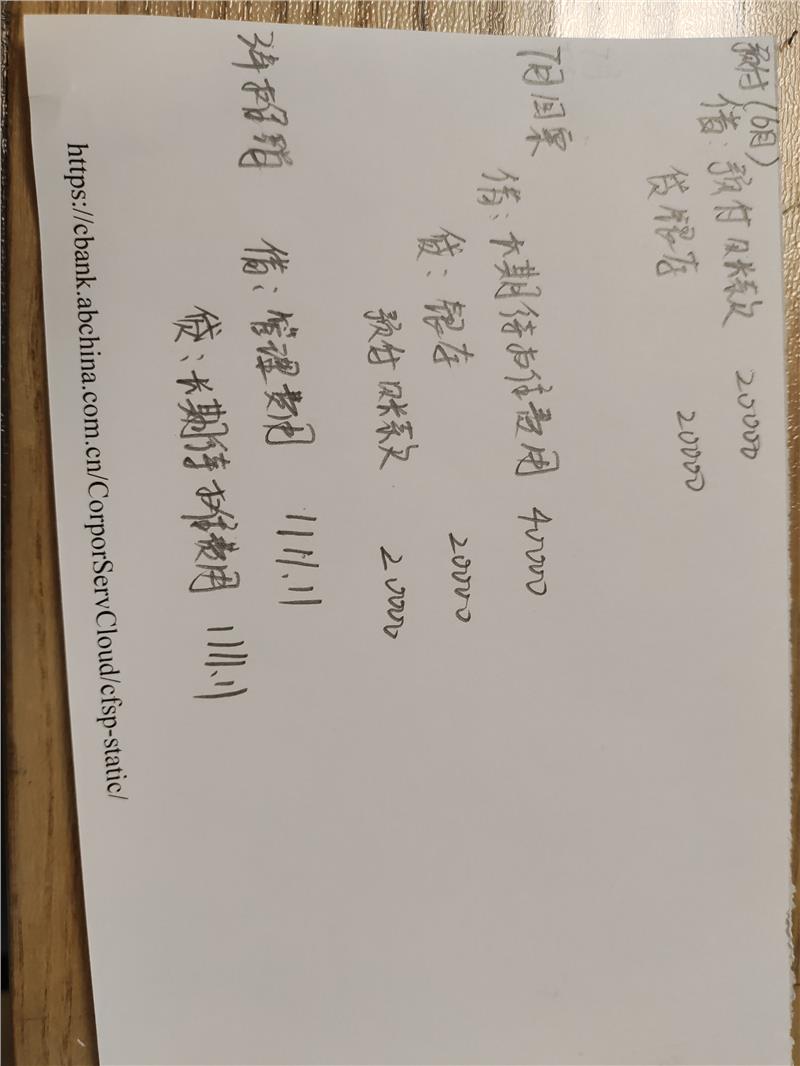 预付(6月)
借:预付账款 20000
贷银存 20000
7月回票
借:长期待摊费用 40000
贷:银存 20000
预付账款 20000
3年摊销
借:管理费用 1111.11
贷:长期待摊费用 1111.11
https://cbank.abchina.com.cn/CorporServCloud/cfsp-static/